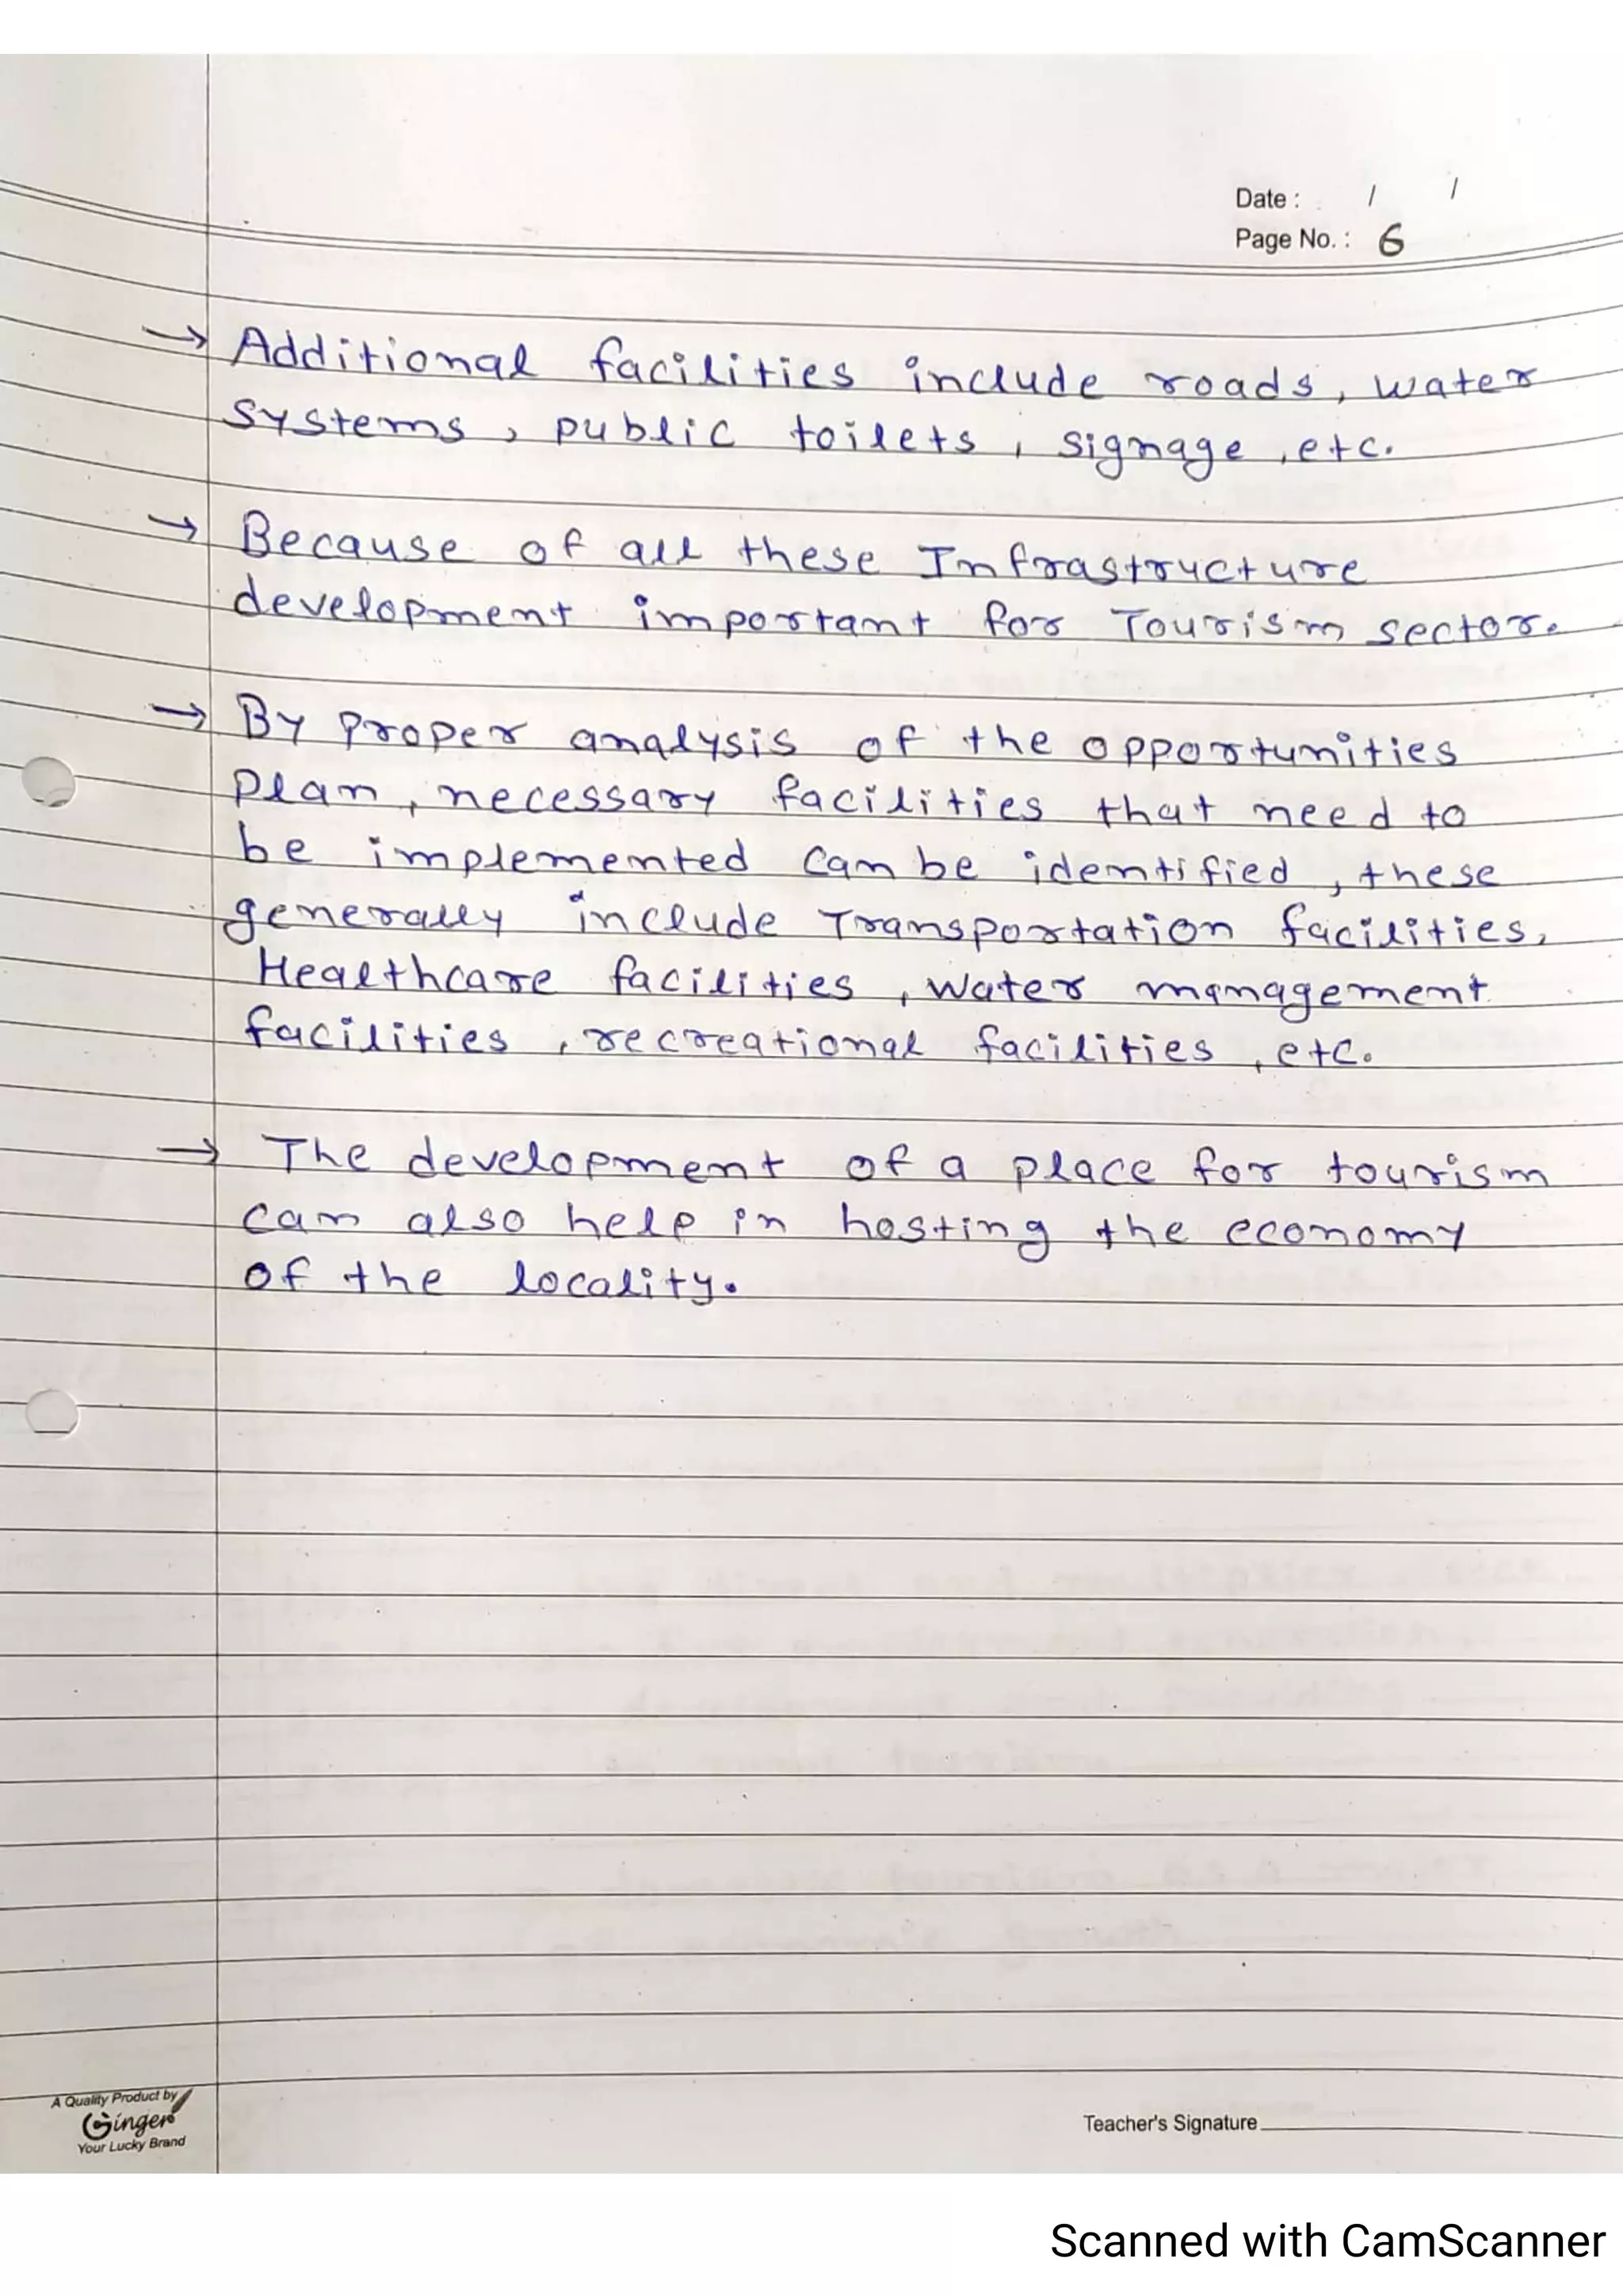 Date : / /
Page No. : 6
→ Additional facilities include roads, water
systems, public toilets, signage, etc.
→ Because of all these Infrastructure
development important for Tourism sector.
→ By proper analysis of the opportunities
plan, necessary facilities that need to
be implemented can be identified, these
generally include Transportation facilities,
Healthcare facilities, water management
facilities, recreational facilities, etc.
→ The development of a place for tourism
can also help in hosting the economy
of the locality.
A Quality Product by
Ginger
Your Lucky Brand
Teacher's Signature
Scanned with CamScanner